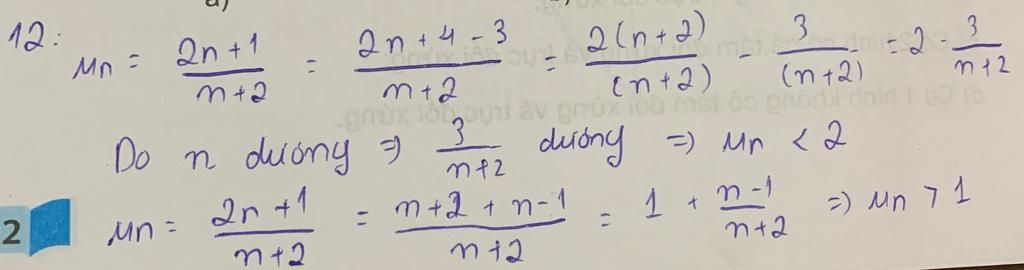 a)
12: un = (2n+1)/(n+2) = (2n+4-3)/(n+2) = 2(n+2)/(n+2) - 3/(n+2) = 2 3/(n+2)
Do n dương ⇒ 3/(n+2) dương ⇒ un < 2
2 un = (2n+1)/(n+2) = (n+2+n-1)/(n+2) = 1 + (n-1)/(n+2) ⇒ un > 1